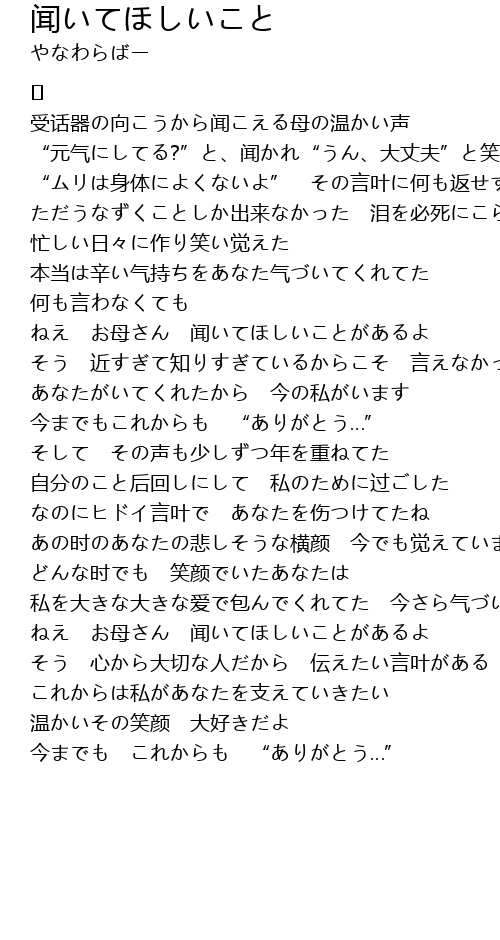 闻いてほしいこと
やなわらばー
[]
受话器の向こうから闻こえる母の温かい声
“元气にしてる?”と、闻かれ“うん、大丈夫”と笑
“ムリは身体によくないよ”　その言叶に何も返せず
ただうなずくことしか出来なかった　泪を必死にこら
忙しい日々に作り笑い覚えた
本当は辛い气持ちをあなた气づいてくれてた
何も言わなくても
ねえ　お母さん　闻いてほしいことがあるよ
そう　近すぎて知りすぎているからこそ　言えなかっ
あなたがいてくれたから　今の私がいます
今までもこれからも　“ありがとう…”
そして　その声も少しずつ年を重ねてた
自分のこと后回しにして　私のために过ごした
なのにヒドイ言叶で　あなたを伤つけてたね
あの时のあなたの悲しそうな横颜　今でも覚えていま
どんな时でも　笑颜でいたあなたは
私を大きな大きな爱で包んでくれてた　今さら气づい
ねえ　お母さん　闻いてほしいことがあるよ
そう　心から大切な人だから　伝えたい言叶がある
これからは私があなたを支えていきたい
温かいその笑颜　大好きだよ
今までも　これからも　“ありがとう…”